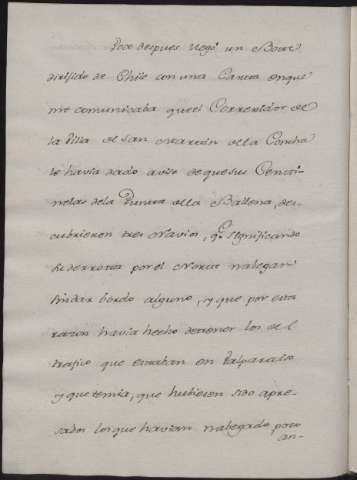 Poco despues llegó un Bote
dirijido de Chile con una Carta en que
me comunicaba que el Corregidor de
la Villa de San Martin de la Concha
le havia dado aviso de que sus Centi-
nelas de la Punta de la Ballena, des-
cubrieron tres Navios, q.e significando
su derrota por el Norte nabegan
sin dar bordo alguno, y que por esta
razon havia hecho detener los del
trafico que estaban en Valparaiso
y que temia, que hubiesen sido apre-
sados los que havian nabegado poco
an-